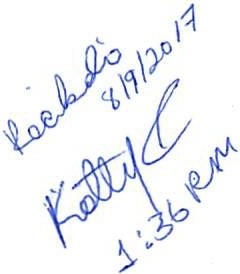 Recibido
8/9/2017
Katty C
1:36 pm